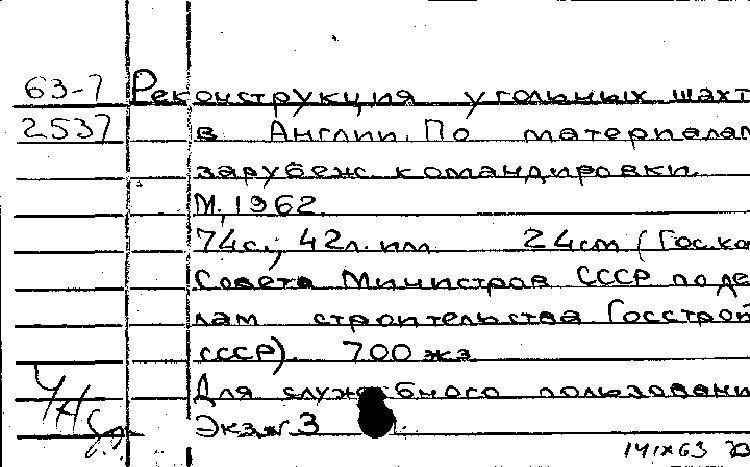 63-7 Реконструкция угольных шахт
2537 в Англии. По материалам
зарубеж. командировки.
М., 1962.
74с.; 42л.ил. 24см (Гос.ко
Совета Министров СССР по де
лам строительства Госстрой
СССР). 700экз
Для служебного пользовани
Экз.№3
14IX63